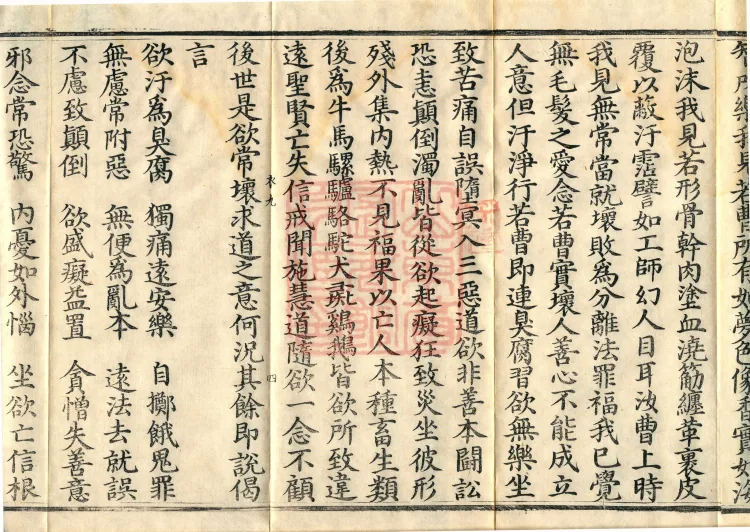 我見若曹所有如夢色像香實如
泡沫我見若形骨幹肉塗血澆筋纏革裹皮
覆以蔽汙露譬如工師幻人目耳汝曹上時
我見無常當就壞敗為分離法罪福我已覺
無毛髮之愛念若曹實壞人善心不能成立
人意但汙淨行若曹即連臭腐習欲無樂坐
致苦痛自誤墮冥入三惡道欲非善本鬪訟
恐恚顛倒濁亂皆從欲起癡狂致災坐彼形
殘外集內熱不見福果以亡人本種畜生類
後為牛馬騾驢駱駝犬彘鷄鵝皆欲所致違
遠聖賢亡失信戒聞施慧道隨欲一念不顧
衣九 四
後世是欲常壞求道之意何況其餘即說偈
言
欲汙為臭腐 獨痛遠安樂 自擲餓鬼罪
無慮常附惡 無便為亂本 遠法去就誤
不慮致顛倒 欲盛癡益置 貪憎失善意
邪念常恐驚 內憂如外惱 坐欲亡信根